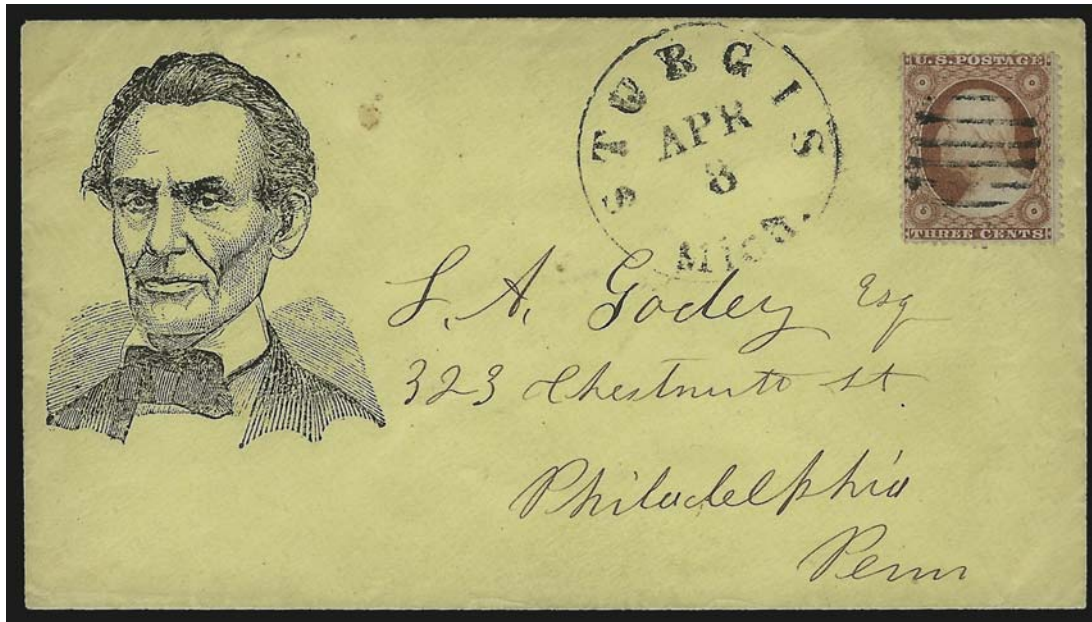 STURGIS
APR
8
Mich.
U.S. POSTAGE
THREE CENTS
L. A. Godey Esq
323 Chestnut st.
Philadelphia
Penn